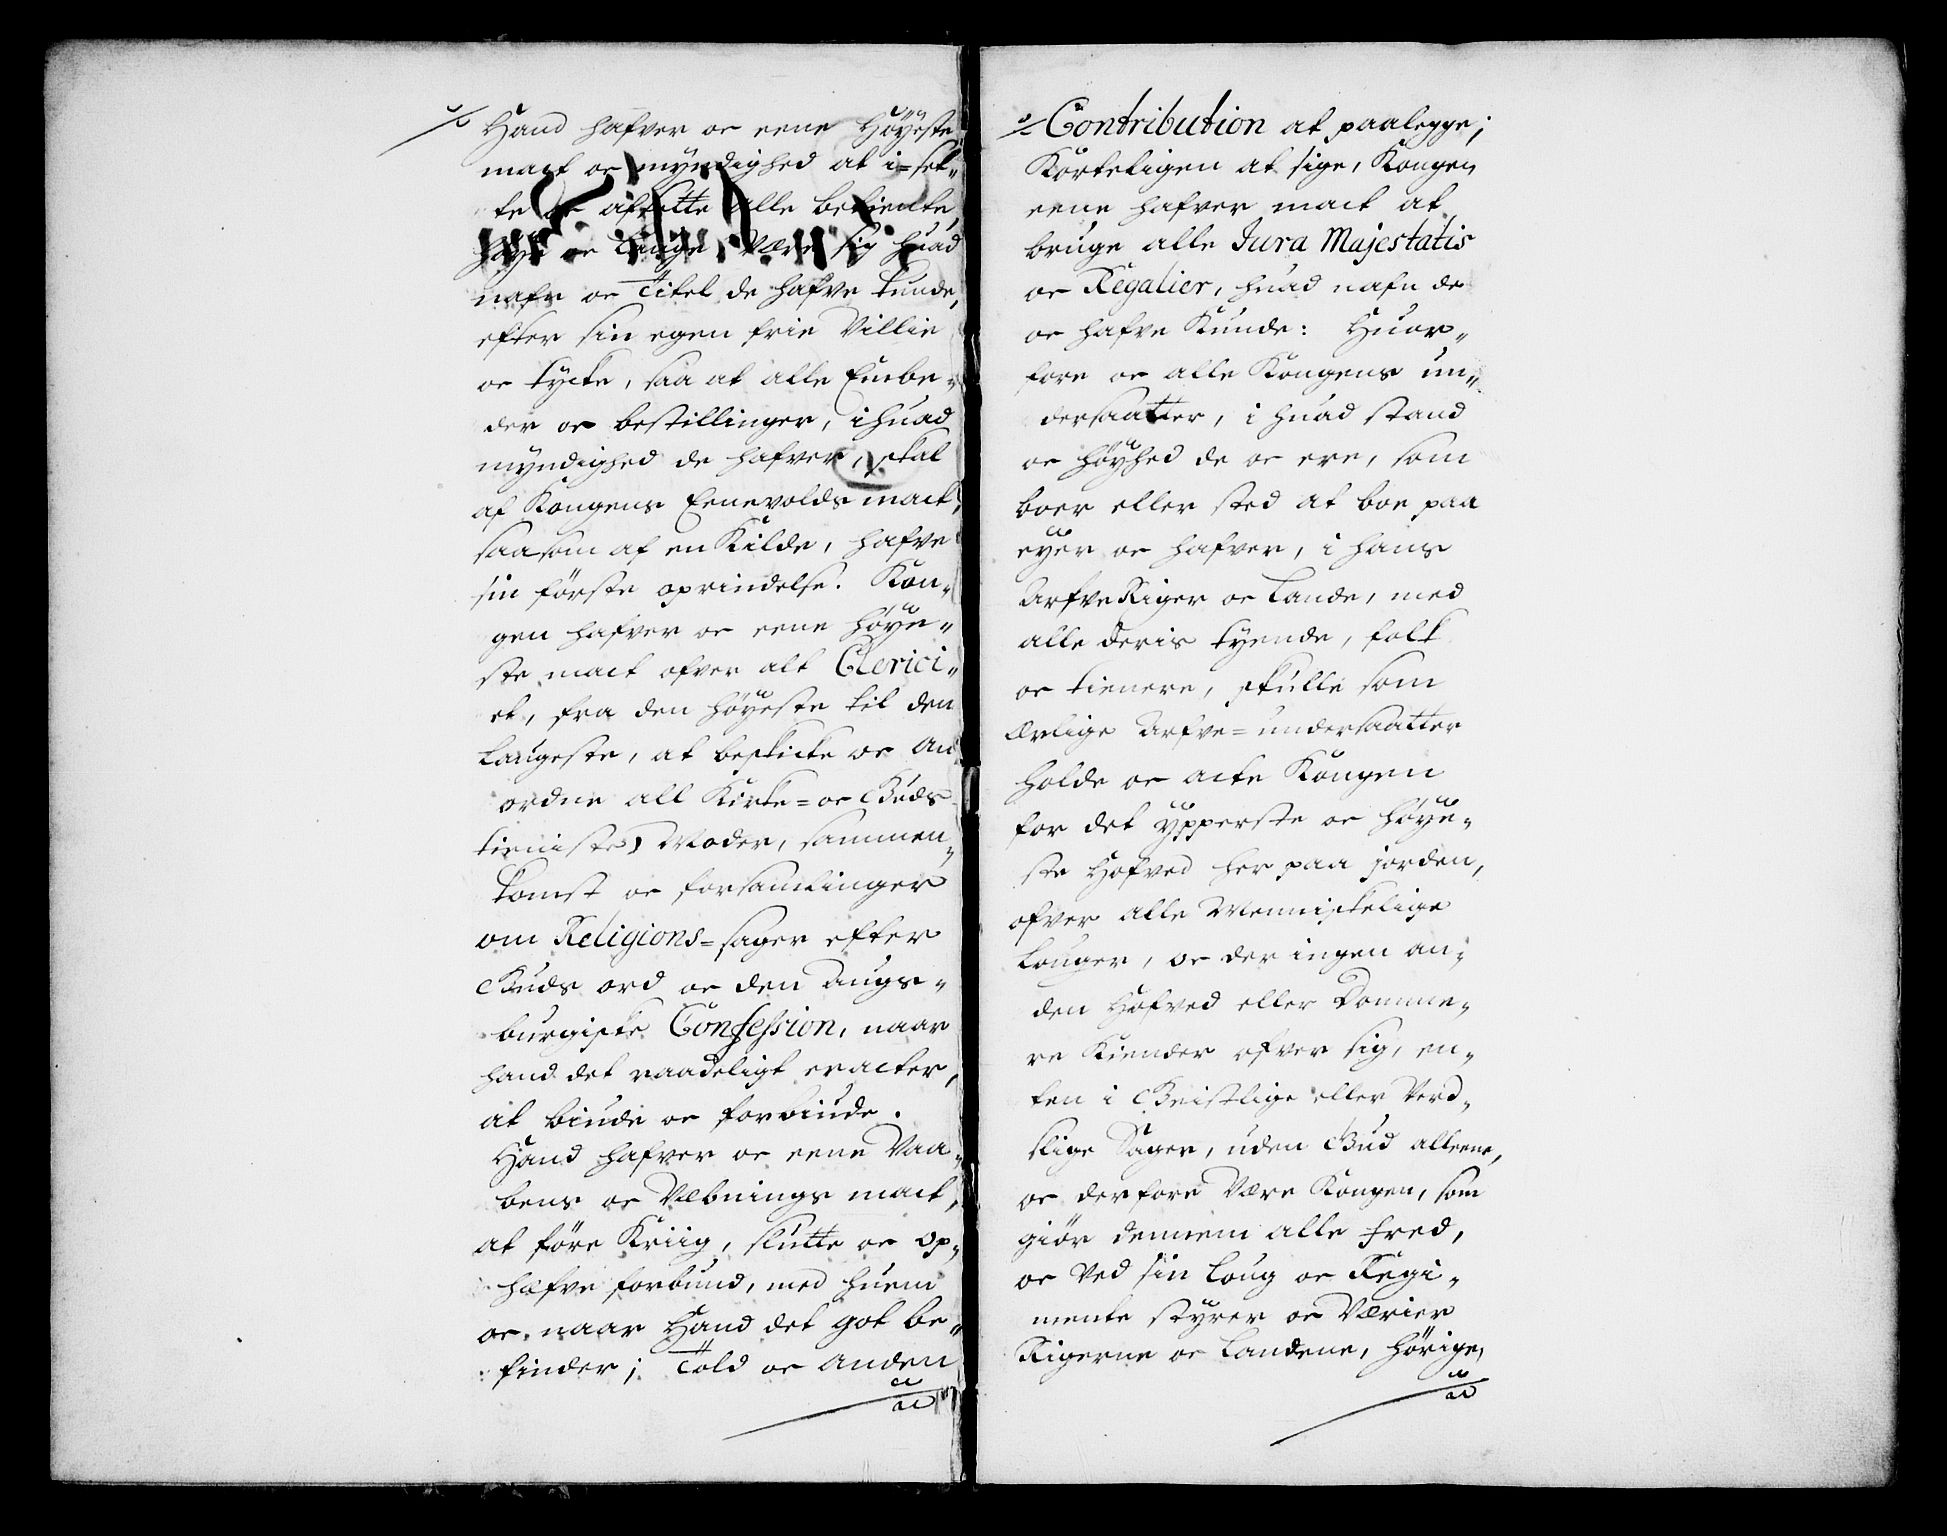 Hand hafver oc eene Höyeste
mact oc myndighed at i-set-
te oc afsette alle betiente
høye oc lauge Være sig huad
nafn oc Titel de hafve kunde,
efter sin egen frie Villie
oc tycke, saa at alle Embe-
der oc bestillinger, ihuad
myndighed de hafver, skal
af Kongens Eenevolds mact,
saasom af en Kilde, hafve
sin förste oprindelse. Kon-
gen hafver oc eene höye-
ste mact ofver alt Clerici-
et, fra den höyeste til den
laugeste, at beskicke oc an-
ordne all Kirke= oc Guds
tieniste, Moder, sammen-
komst oc forsamlinger
om Religions=sager efter
Guds ord oc den Augs-
burgiske Confession, naar
hand det raadeligt eracter,
at biude oc forbiude.
Hand hafver oc eene Vaa-
bens oc Væbnings mact,
at före Kriig, slutte oc op-
hæfve forbund, med huem
oc naar Hand det got be-
finder; Told oc anden
Contribution at paalegge;
Korteligen at sige, Kongen
eene hafver mact at
bruge alle Jura Majestatis
oc Regalier, huad nafn de
oc hafve Kunde: Huor-
fore oc alle Kongens un-
dersaatter, i huad stand
oc höyhed de oc ere, som
boer eller sted at boe paa
eyer oc hafver, i hans
Arfve Riger oc Lande, med
alle deris tyende, folk
oc tienere, skulle som
ærlige Arfve=undersaatter
holde oc acte Kongen
for det ypperste oc höye-
ste Hofved her paa jorden,
ofver alle Menniskelige
Louger, oc der ingen an-
den Hofved eller Domme-
re Kiender ofver sig, en-
ten i Geistlige eller Verd-
slige Sager, uden Gud alleene,
oc derfore Være Kongen, som
giör dennem alle fred,
oc Ved sin Loug oc Regi-
mente styrer oc Værier
Rigerne oc Landene, hörige,